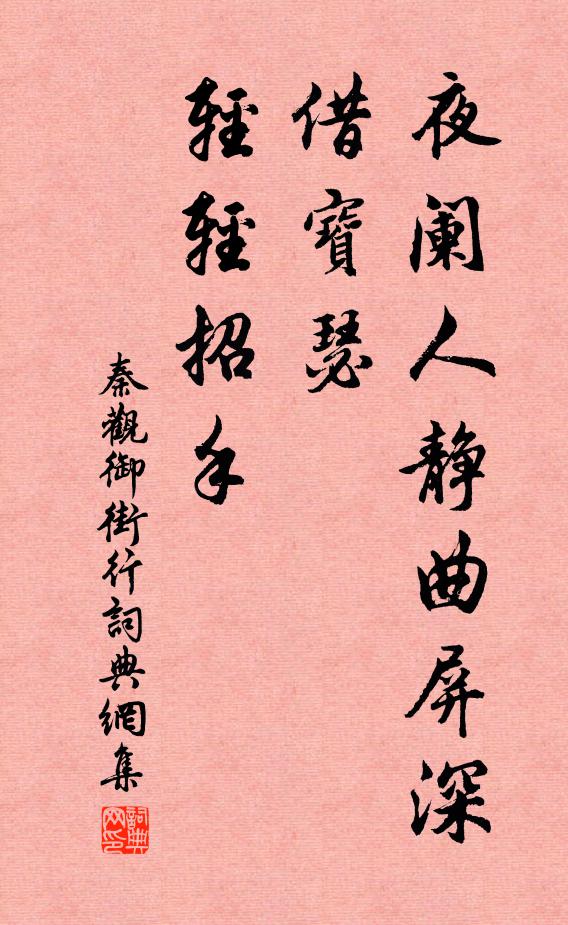 夜阑人静曲屏深
借寶瑟
輕輕招手
秦觀御街行詞典網集
詞典网印